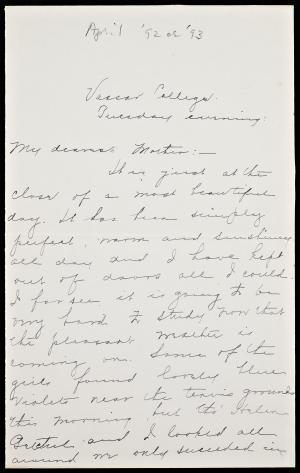 April '92 or '93
Vassar College.
Tuesday evening.
My dearest Mother:—
It is just at the
close of a most beautiful
day. It has been simply
perfect, warm and sunshiny
all day and I have kept
out of doors all I could.
I forsee it is going to be
very hard to study now that
the pleasant weather is
coming on. Some of the
girls found lovely blue
violets near the tennis grounds
this morning, but tho' Helen
and I looked all
around we only succeeded in